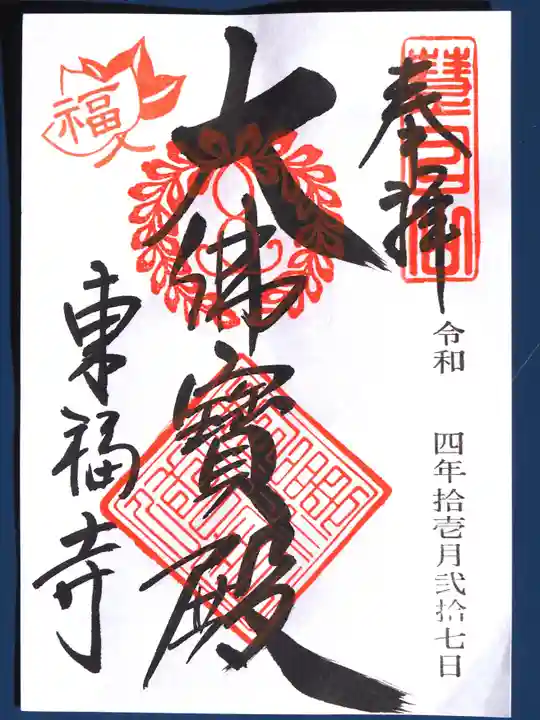 奉拝
令和 四年拾壱月弐拾七日
大佛寶殿
東福寺
福